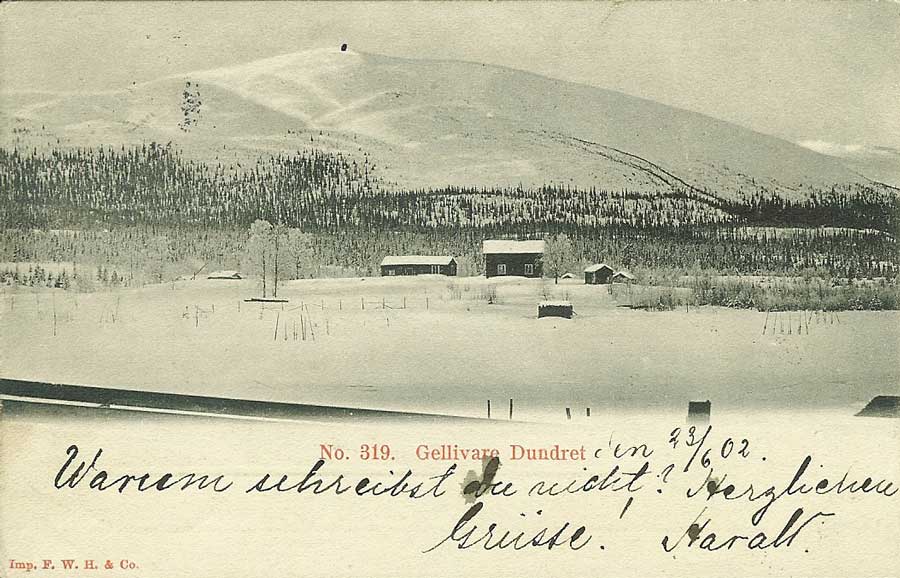 No. 319. Gellivare Dundret den 23/6 02.
Warum schreibst du nicht? Herzlichen
Grüsse! Harald.
Imp. F. W. H. & Co.